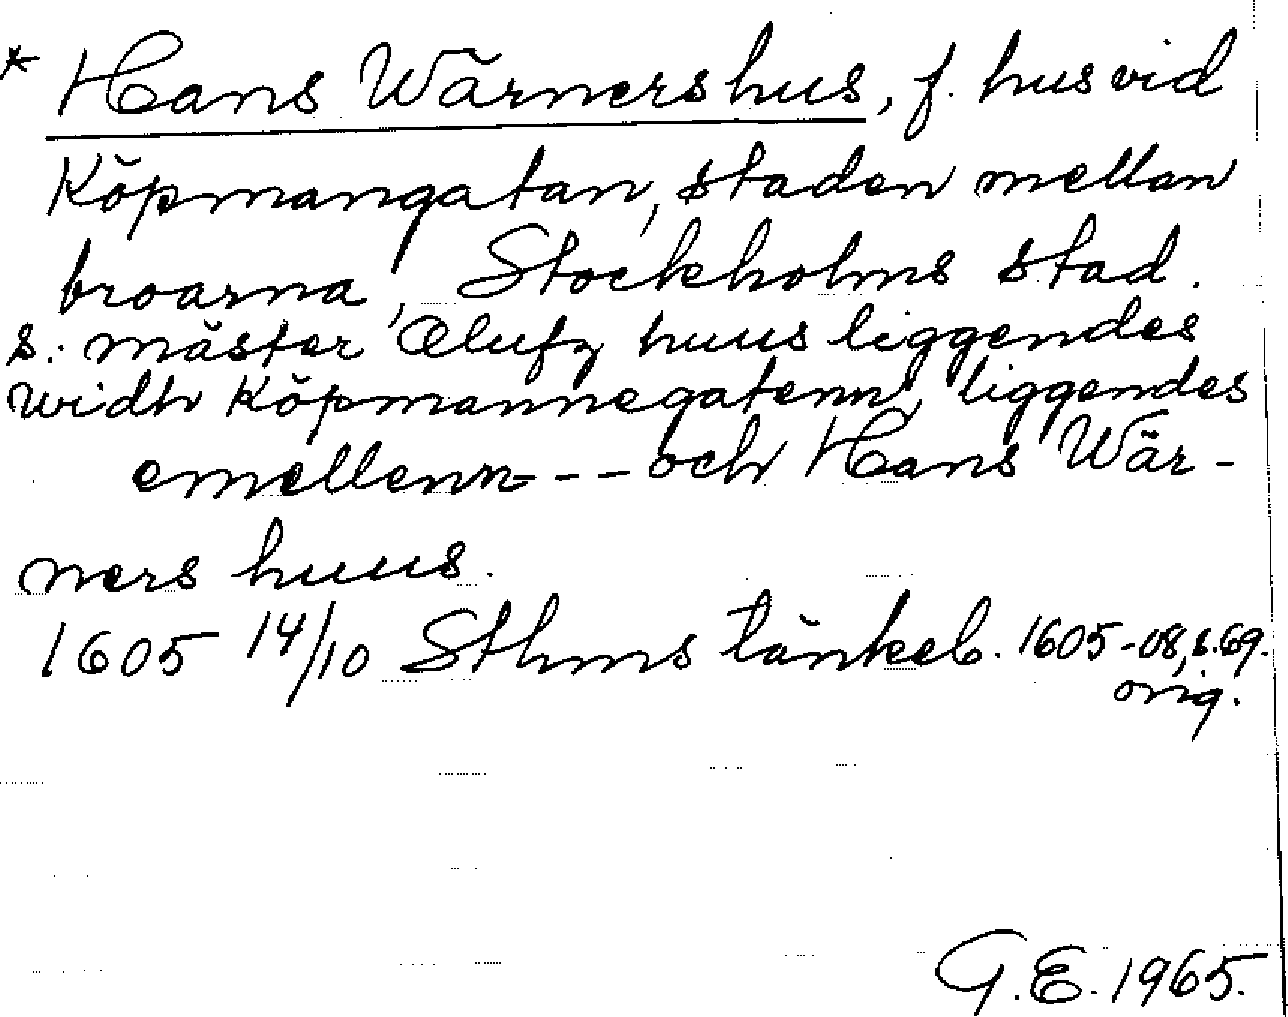 * Hans Wärnershus, f. hus vid
Köpmangatan, staden mellan
broarna, Stockholms stad.
s. mäster Olufz huus liggendes
widh Köpmannegatenn, liggendes
emellenn - - - och Hans Wär-
ners huus.
1605 14/10 Sthms tänkeb. 1605-08, s. 69.
orig.
G.E. 1965.